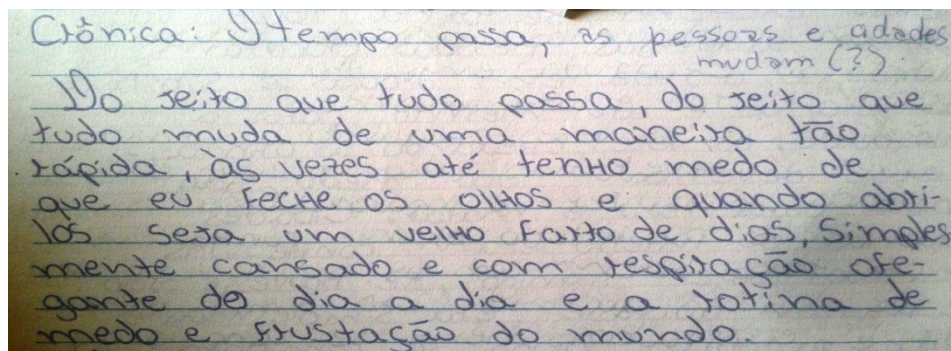 Crônica: O tempo passa, as pessoas e cidades
mudam (?)
Do jeito que tudo passa, do jeito que
tudo muda de uma maneira tão
rápida, às vezes até tenho medo de
que eu feche os olhos e quando abri-
los seja um velho farto de dias, simples
mente cansado e com respiração ofe-
gante do dia a dia e a rotina de
medo e frustação do mundo.